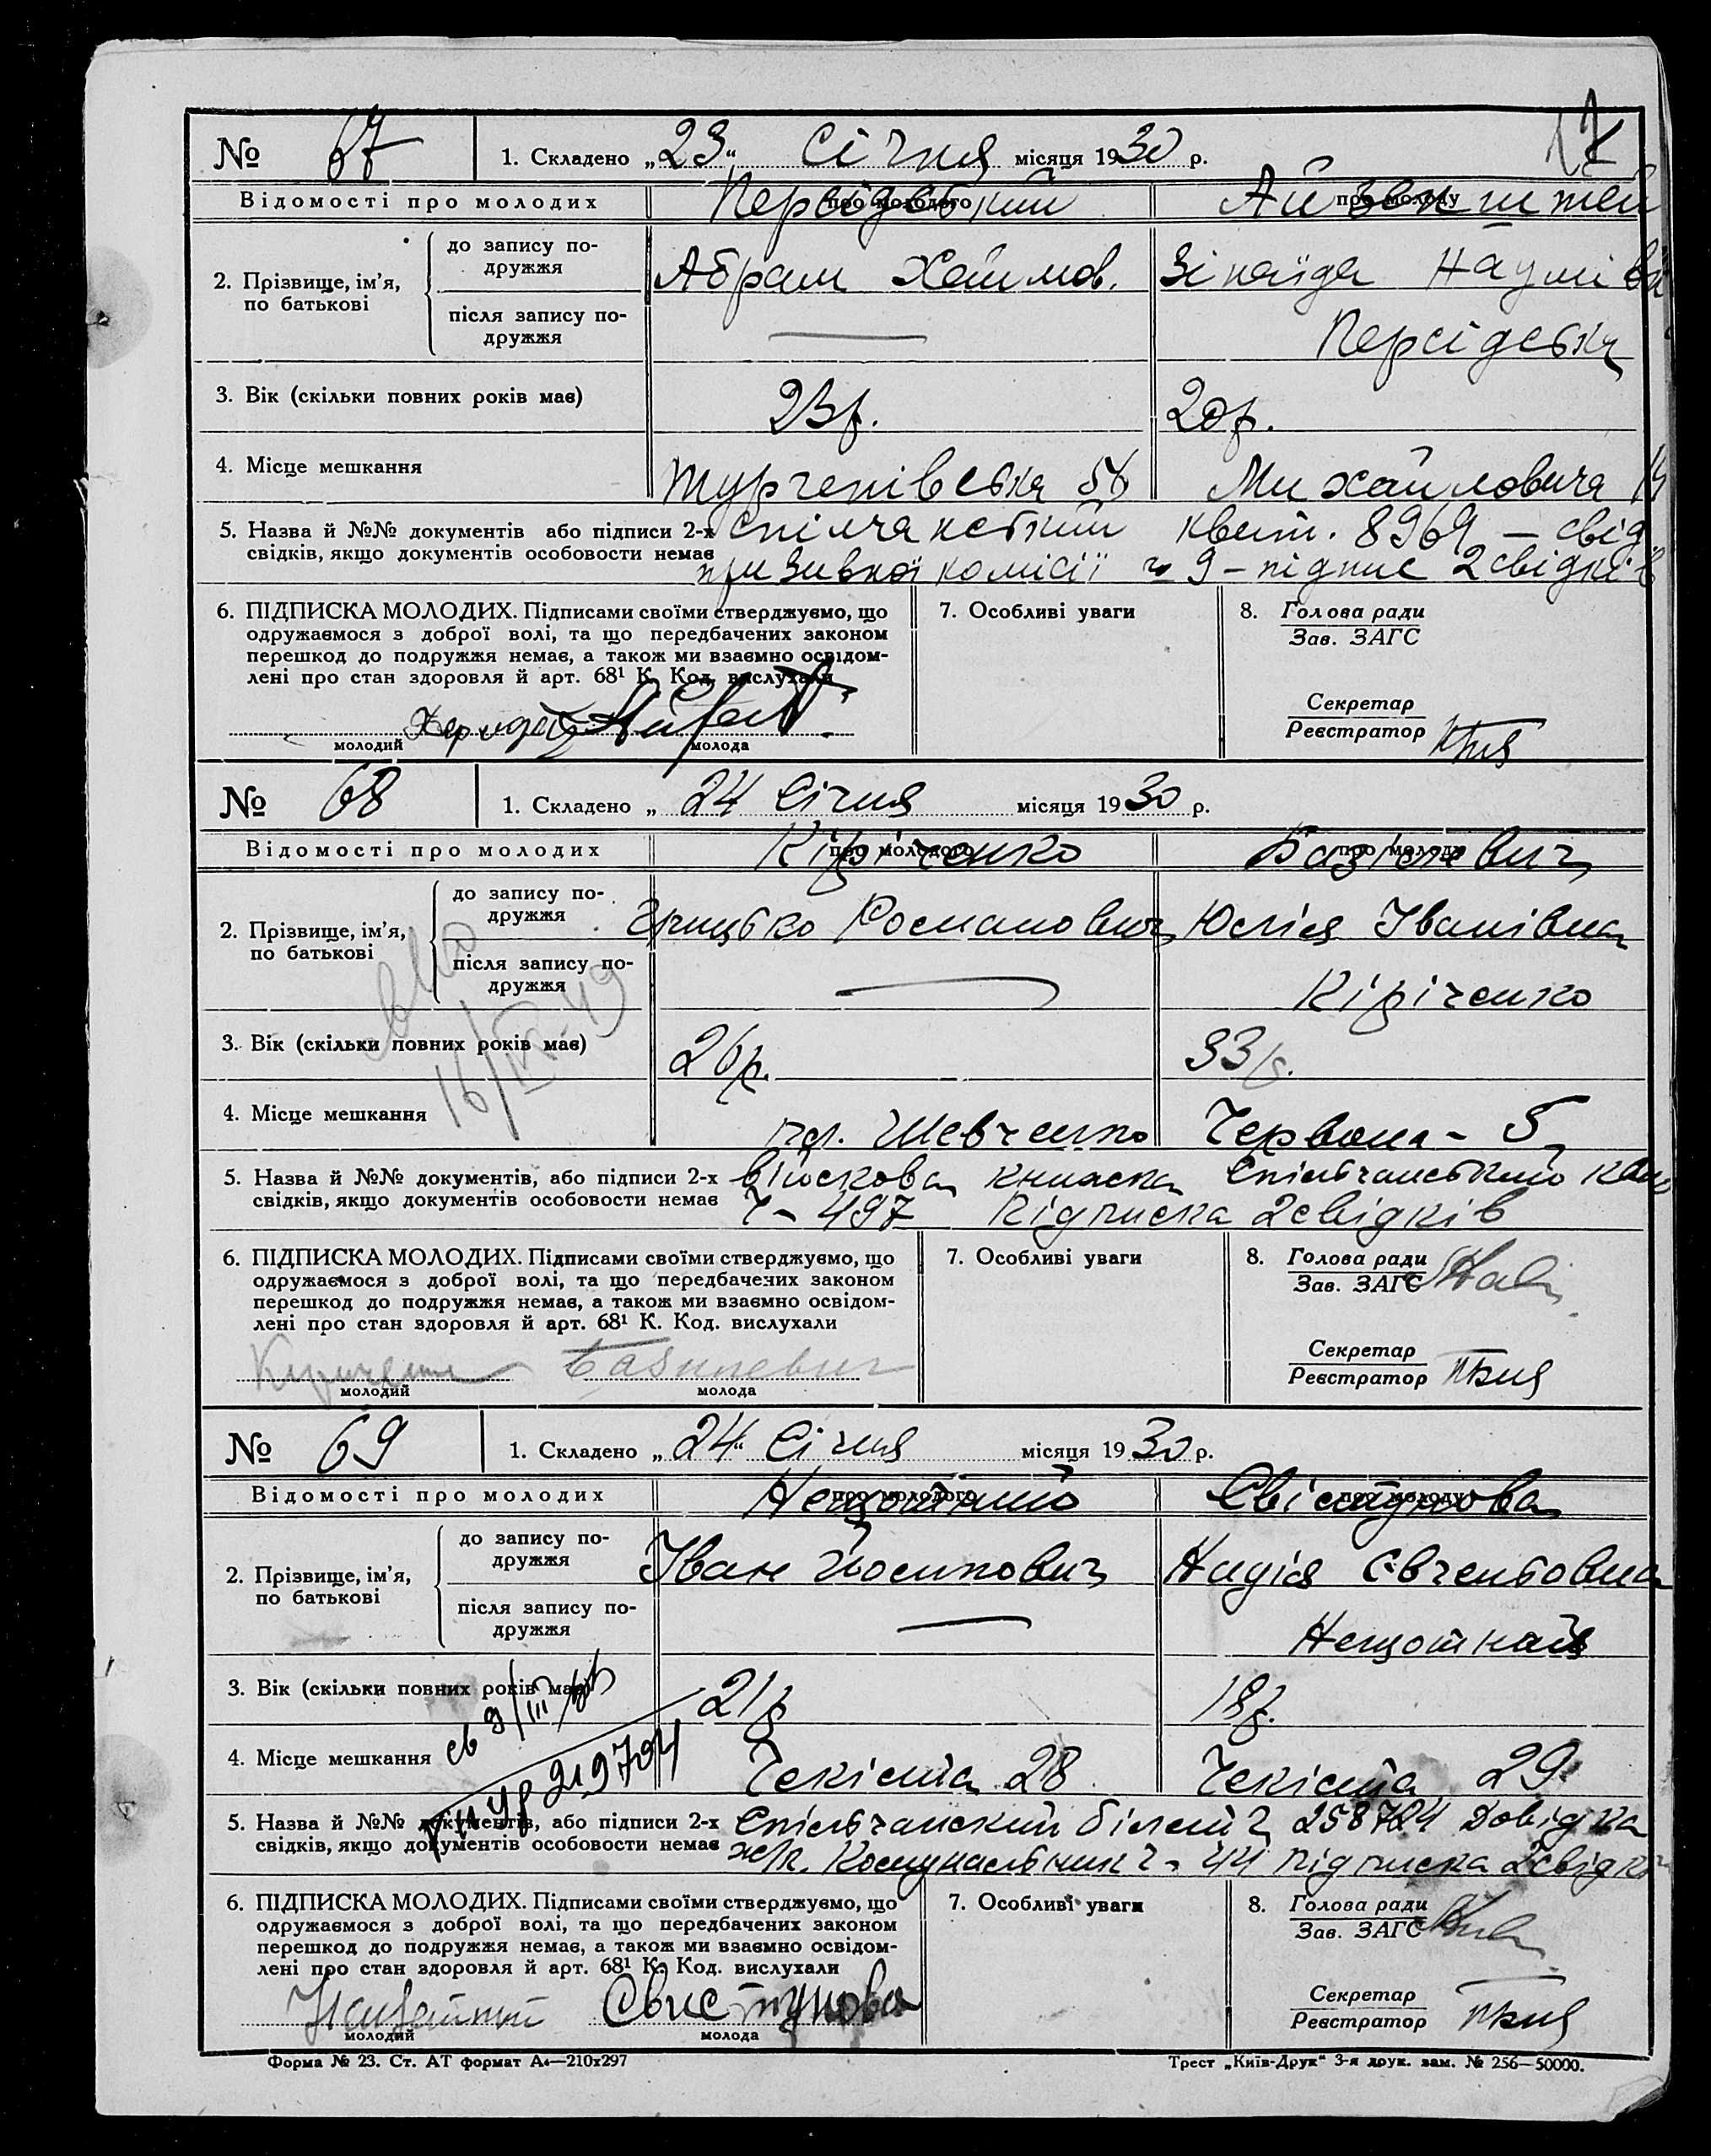 № 67 1. Складено „23“ Січня місяця 1930 р.
Відомості про молодих про молодого про молоду
Персідський
2. Прізвище, ім’я, по батькові
до запису подружжя Абрам Хаїмов. Зінаїда Наумівн
після запису подружжя — Персідська
3. Вік (скільки повних років має) 23р. 20р.
4. Місце мешкання Тургенівська 56 Михайловича 14
5. Назва й №№ документів або підписи 2-х Спілчанский квит. 8969 — свід.
свідків, якщо документів особовости немає призивної комісії ч 9 – підпис 2 свідків
6. ПІДПИСКА МОЛОДИХ. Підписами своїми стверджуємо, що 7. Особливі уваги 8. Голова ради
одружаємося з доброї волі, та що передбачених законом Зав. ЗАГС
перешкод до подружжя немає, а також ми взаємно освідом-
лені про стан здоровля й арт. 68¹ К. Код. вислухали
Секретар
Реєстратор
молодий молода
№ 68 1. Складено „ 24 Січня місяця 1930 р.
Відомості про молодих про молодого про молоду
Кіріченко Базілевич
2. Прізвище, ім’я, по батькові
до запису подружжя Грицько Романович Юлія Іванівна
після запису подружжя — Кіріченко
3. Вік (скільки повних років має) 26р. 33р.
16/IV-49
4. Місце мешкання пл. Шевченко Червона – 5
5. Назва й №№ документів, або підписи 2-х військова книжка Спільчанською
свідків, якщо документів особовости немає ч – 497 Підписка 2 свідків
6. ПІДПИСКА МОЛОДИХ. Підписами своїми стверджуємо, що 7. Особливі уваги 8. Голова ради
одружаємося з доброї волі, та що передбачених законом Зав. ЗАГС
перешкод до подружжя немає, а також ми взаємно освідом-
лені про стан здоровля й арт. 68¹ К. Код. вислухали
Секретар
Базилевич Реєстратор
молодий молода
№ 69 1. Складено „24“ Січня місяця 1930 р.
Відомості про молодих про молодого про молоду
Свістунова
2. Прізвище, ім’я, по батькові
до запису подружжя Іван Йосипович Надія
після запису подружжя — Нещотная
3. Вік (скільки повних років має) 21р 18р.
4. Місце мешкання Чекіста 28 Чекіста 29
5. Назва й №№ документів, або підписи 2-х Спільчанский білет ч 258724 Довідка
свідків, якщо документів особовости немає жк. Комунальник ч – 44 підписка 2 свідків
6. ПІДПИСКА МОЛОДИХ. Підписами своїми стверджуємо, що 7. Особливі уваги 8. Голова ради
одружаємося з доброї волі, та що передбачених законом Зав. ЗАГС
перешкод до подружжя немає, а також ми взаємно освідом-
лені про стан здоровля й арт. 68¹ К. Код. вислухали
Секретар
Свистунова Реєстратор
молодий молода
Форма № 23. Ст. АТ формат А₄—210х297 Трест „Київ-Друк“ 3-я друк. зам. № 256—50000.